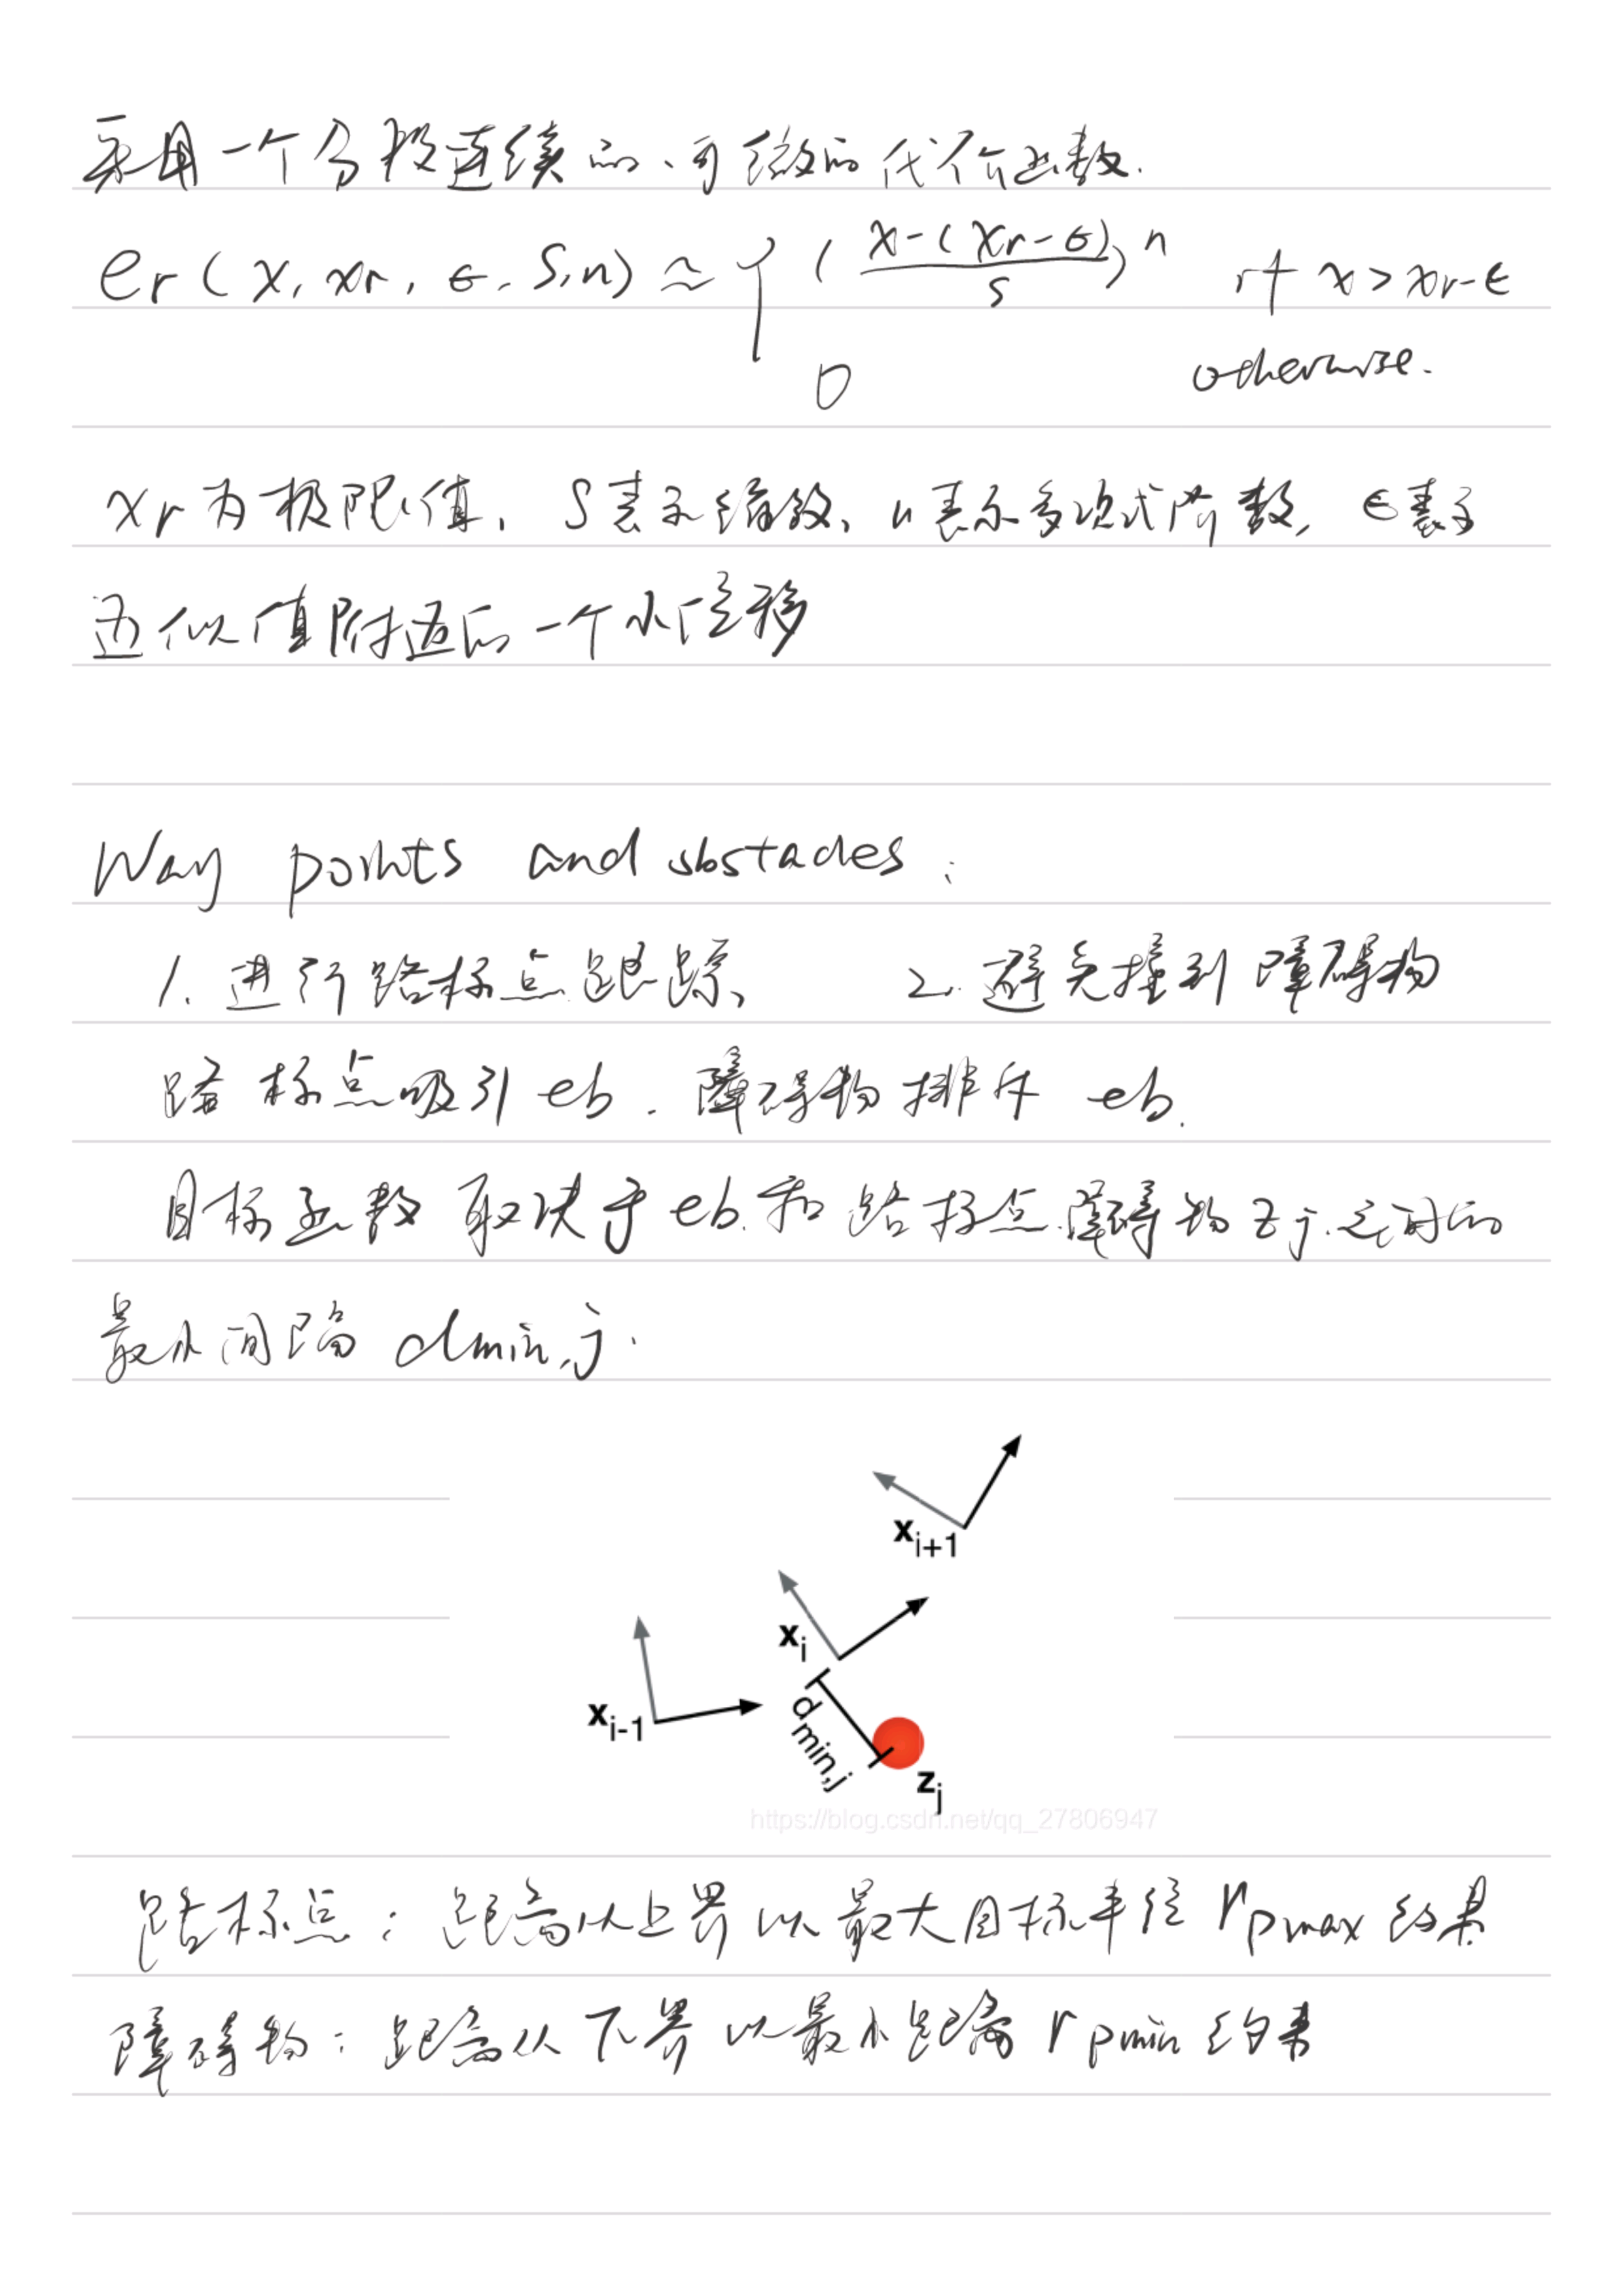 采用一个分段连续的、可微的代价函数.
er(x, xr, ϵ, S, n) ≃ { ((x-(xr-ϵ))/s)^n if x > xr-ϵ
0 otherwise.
xr为极限值, S表示缩放, n表示多项式阶数, ϵ表示
近似值附近的一个小位移
Way points and obstacles:
1. 进行路标点跟踪、 2. 避免撞到障碍物
路标点吸引eb. 障碍物排斥eb.
目标函数取决于eb.和路标点.障碍物zj.之间的
最小间隔 dmin,j.
xi+1
xi
xi-1
dmin,j
zj
https://blog.csdn.net/qq_27806947
路标点: 距离从上界以最大目标半径 rpmax 约束
障碍物: 距离从下界以最小距离 rpmin 约束